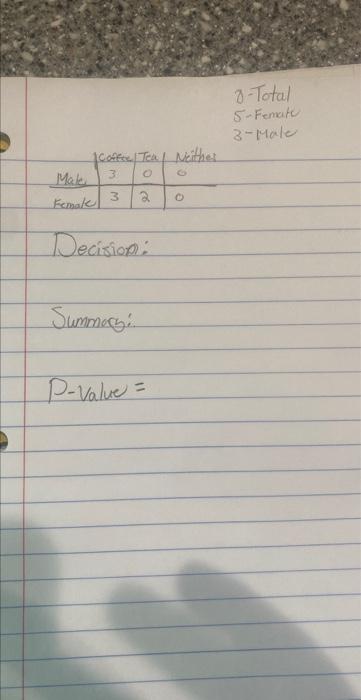 8-Total
5-Female
3-Male
Coffee Tea Neither
Male 3 0 0
Female 3 2 0
Decision:
Summary:
P-Value =